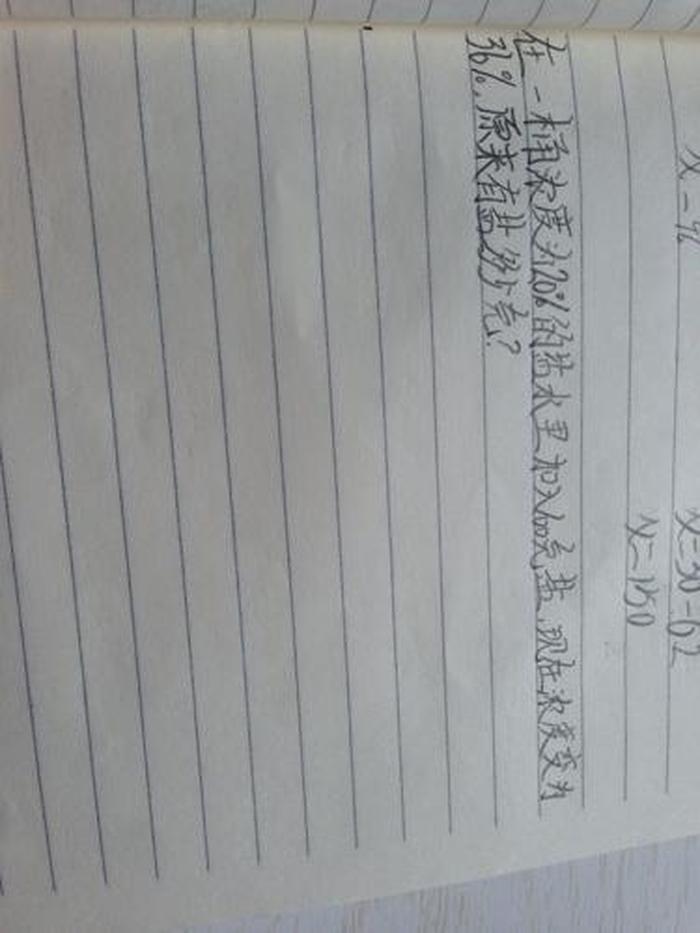 x=30÷0.2
x=150
在一桶浓度为20%的盐水里加入100克盐,现在浓度变为
36%,原来有盐多少克?